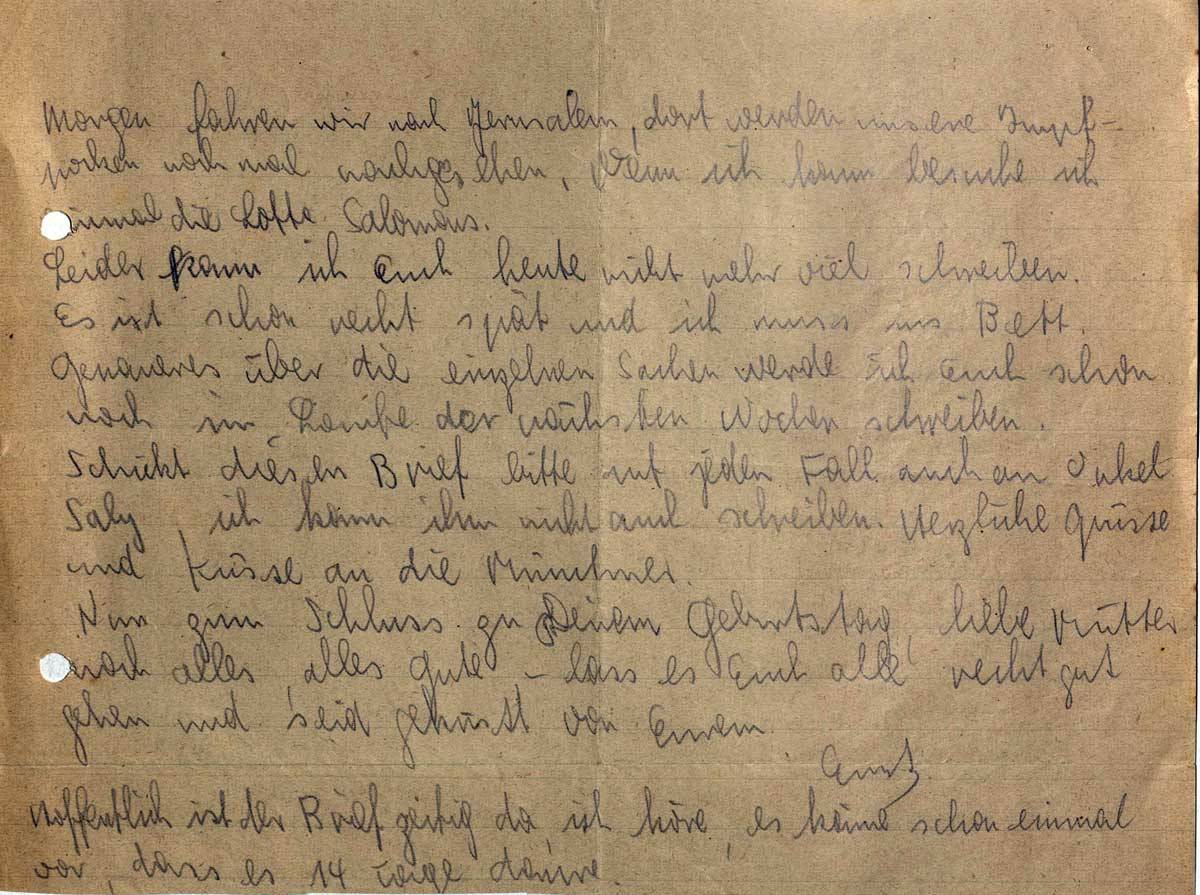 Morgen fahren wir nach Jerusalem, dort werden unsere Impf-
pocken noch mal nachgesehen. Wenn ich kann besuche ich
einmal die Lotte Salomons.
Leider kann ich Euch heute nicht mehr viel schreiben.
Es ist schon recht spät und ich muss ins Bett.
Genaueres über die einzelnen Sachen werde ich Euch schon
noch im Laufe der nächsten Wochen schreiben.
Schickt diesen Brief bitte auf jeden Fall auch an Onkel
Saly, ich kann ihm nicht auch schreiben. Herzliche Grüsse
und Küsse an die Münchner.
Nun zum Schluss zu Deinem Geburtstag, liebe Mutter
noch alles, alles Gute – lass es Euch alle recht gut
gehen und seid geküsst von Eurem
Ernst.
Hoffentlich ist der Brief zeitig da, ich höre, es käme schon einmal
vor, dass es 14 Tage daure.